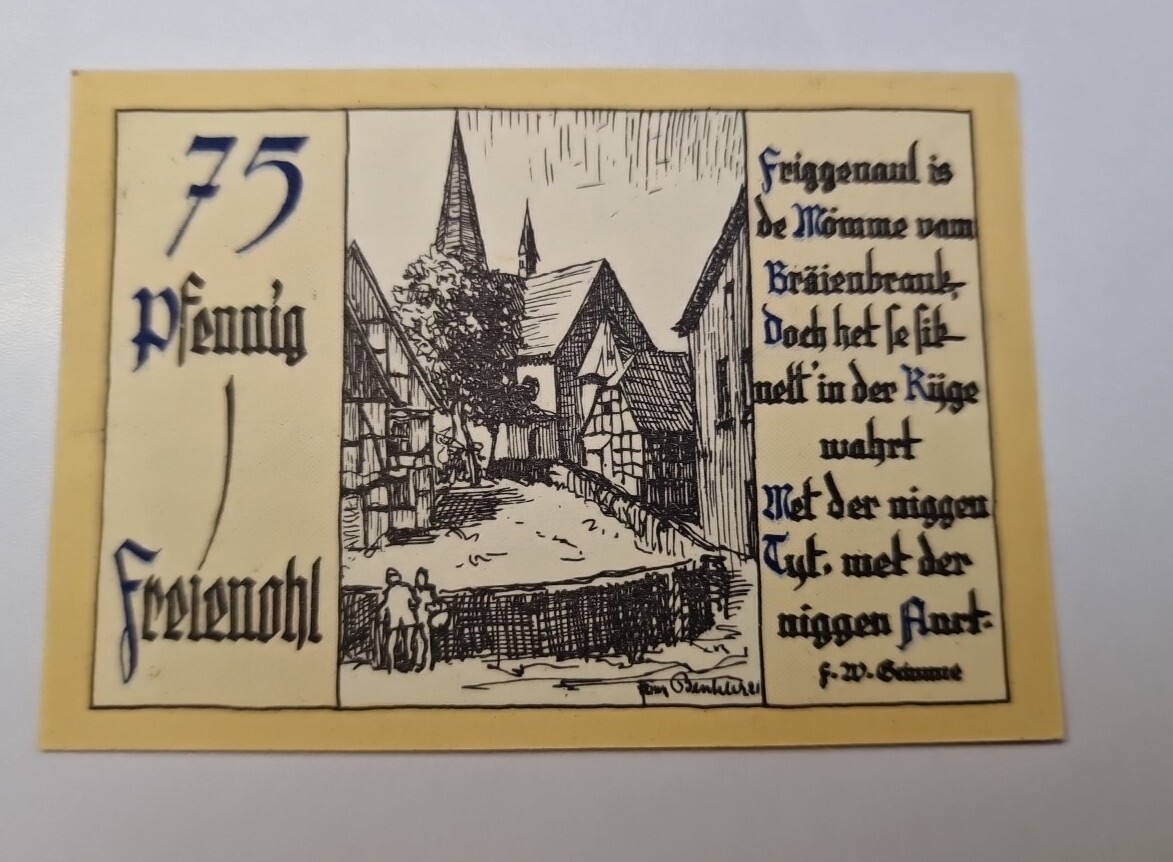 75
Pfennig
Freienohl
Friggenaul is
de Mömme vam
Bräienbrauk,
Doch het se sik
nett' in der Rüge
wahrt
Met der niggen
Tyt. met der
niggen Aart.
F. W. Grimme